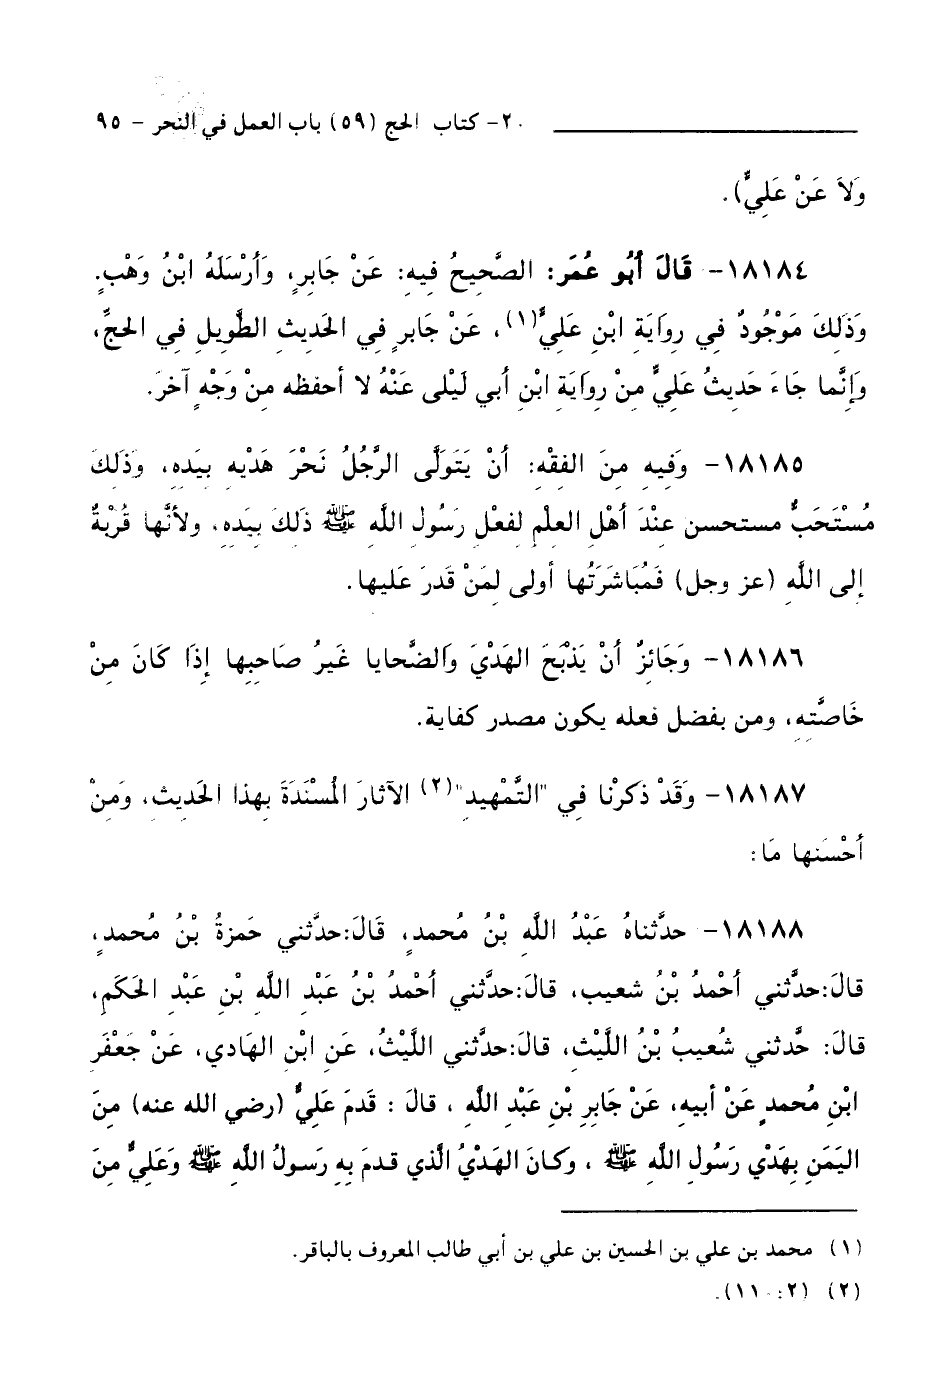 ٢٠- كتاب الحج (٥٩) باب العمل في النحر - ٩٥
وَلاَ عَنْ عَلِيٍّ).
١٨١٨٤- قَالَ أَبُو عُمَر: الصَّحِيحُ فِيهِ: عَنْ جَابِرٍ، وَأَرْسَلَهُ ابْنُ وَهْبٍ.
وَذَلِكَ مَوْجُودٌ فِي رِوَايَةِ ابْنِ عَلِيٍّ(١)، عَنْ جَابِرٍ فِي الحَدِيثِ الطَّوِيلِ فِي الحجِّ،
وَإِنَّما جَاءَ حَدِيثُ عَلِيٍّ مِنْ رِوَايَةِ ابْنِ أبي لَيْلى عَنْهُ لا أحفظه مِنْ وَجْهٍ آخرَ.
١٨١٨٥- وَفِيهِ مِنَ الفِقْهِ: أَنْ يَتَوَلَّى الرَّجُلُ نَحْرَ هَدْيِهِ بِيَدِهِ، وَذَلِكَ
مُسْتَحَبٌّ مستحسن عِنْدَ أهْلِ العِلْمِ لِفعْلِ رَسُولِ اللَّهِ ﷺ ذَلِكَ بِيَدِهِ، ولأنَّها قُرْبَةٌ
إلى اللَّهِ (عز وجل) فَمُبَاشَرَتُها أولى لِمَنْ قَدرَ عَليها.
١٨١٨٦- وَجَائِزٌ أَنْ يَذْبَحَ الهَدْيَ وَالضَّحايا غَيرُ صَاحِبِها إِذَا كَانَ مِنْ
خَاصَّتِهِ، ومن بفضل فعله يكون مصدر كفاية.
١٨١٨٧- وَقَدْ ذكرْنا فِي "التَّمْهِيدِ"(٢) الآثارَ المُسْنَدَةَ بِهذا الحَدِيثِ، وَمِنْ
أحْسَنِها مَا:
١٨١٨٨- حدَّثناهُ عَبْدُ اللَّهِ بْنُ مُحمدٍ، قَالَ:حدَّثني حَمزةُ بْنُ مُحمدٍ،
قالَ:حدَّثني أحْمدُ بْنُ شعيب، قالَ:حدَّثني أحْمدُ بْنُ عَبْدِ اللَّهِ بْنِ عَبْدِ الحَكَمِ،
قالَ: حَّدثني شُعيبُ بْنُ اللَّيْثِ، قالَ:حدَّثني اللَّيْثُ، عَنِ ابْنِ الهَادي، عَنْ جَعْفَرِ
ابْنِ مُحمدٍ عَنْ أبيهِ، عَنْ جَابِرِ بْنِ عَبْدِ اللَّهِ ، قالَ : قَدمَ عَليٌّ (رضي الله عنه) مِنَ
اليَمَنِ بِهَدْي رَسُولِ اللَّهِ ﷺ ، وكانَ الهَدْيُ الَّذي قدمَ بِهِ رَسولُ اللَّهِ ﷺ وَعَلِيٌّ مِنَ
(١) محمد بن علي بن الحسين بن علي بن أبي طالب المعروف بالباقر.
(٢) (٢: ١١٠).